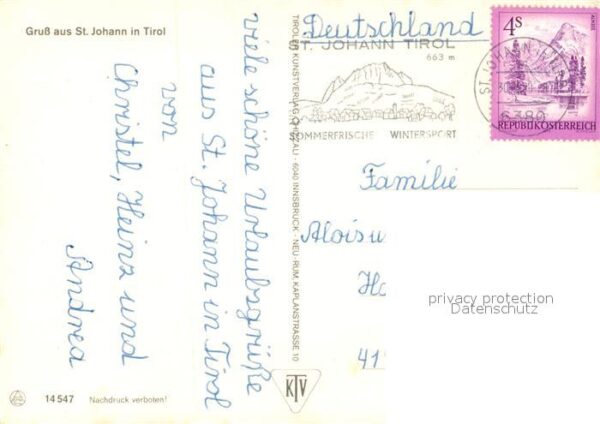 Gruß aus St. Johann in Tirol
viele schöne Urlaubsgrüße
aus St. Johann in Tirol
von
Christel, Heinz und
Andrea
14 547 Nachdruck verboten!
TIROLER KUNSTVERLAG CHIZZALI · 6040 INNSBRUCK · NEU-RUM, KAPLANSTRASSE 10
KTV
Deutschland
ST. JOHANN TIROL
663 m
SOMMERFRISCHE WINTERSPORT
4S
ALMSEE
REPUBLIK ÖSTERREICH
ST. JOHANN
6380
Familie
Alois u
Ha
41
privacy protection
Datenschutz